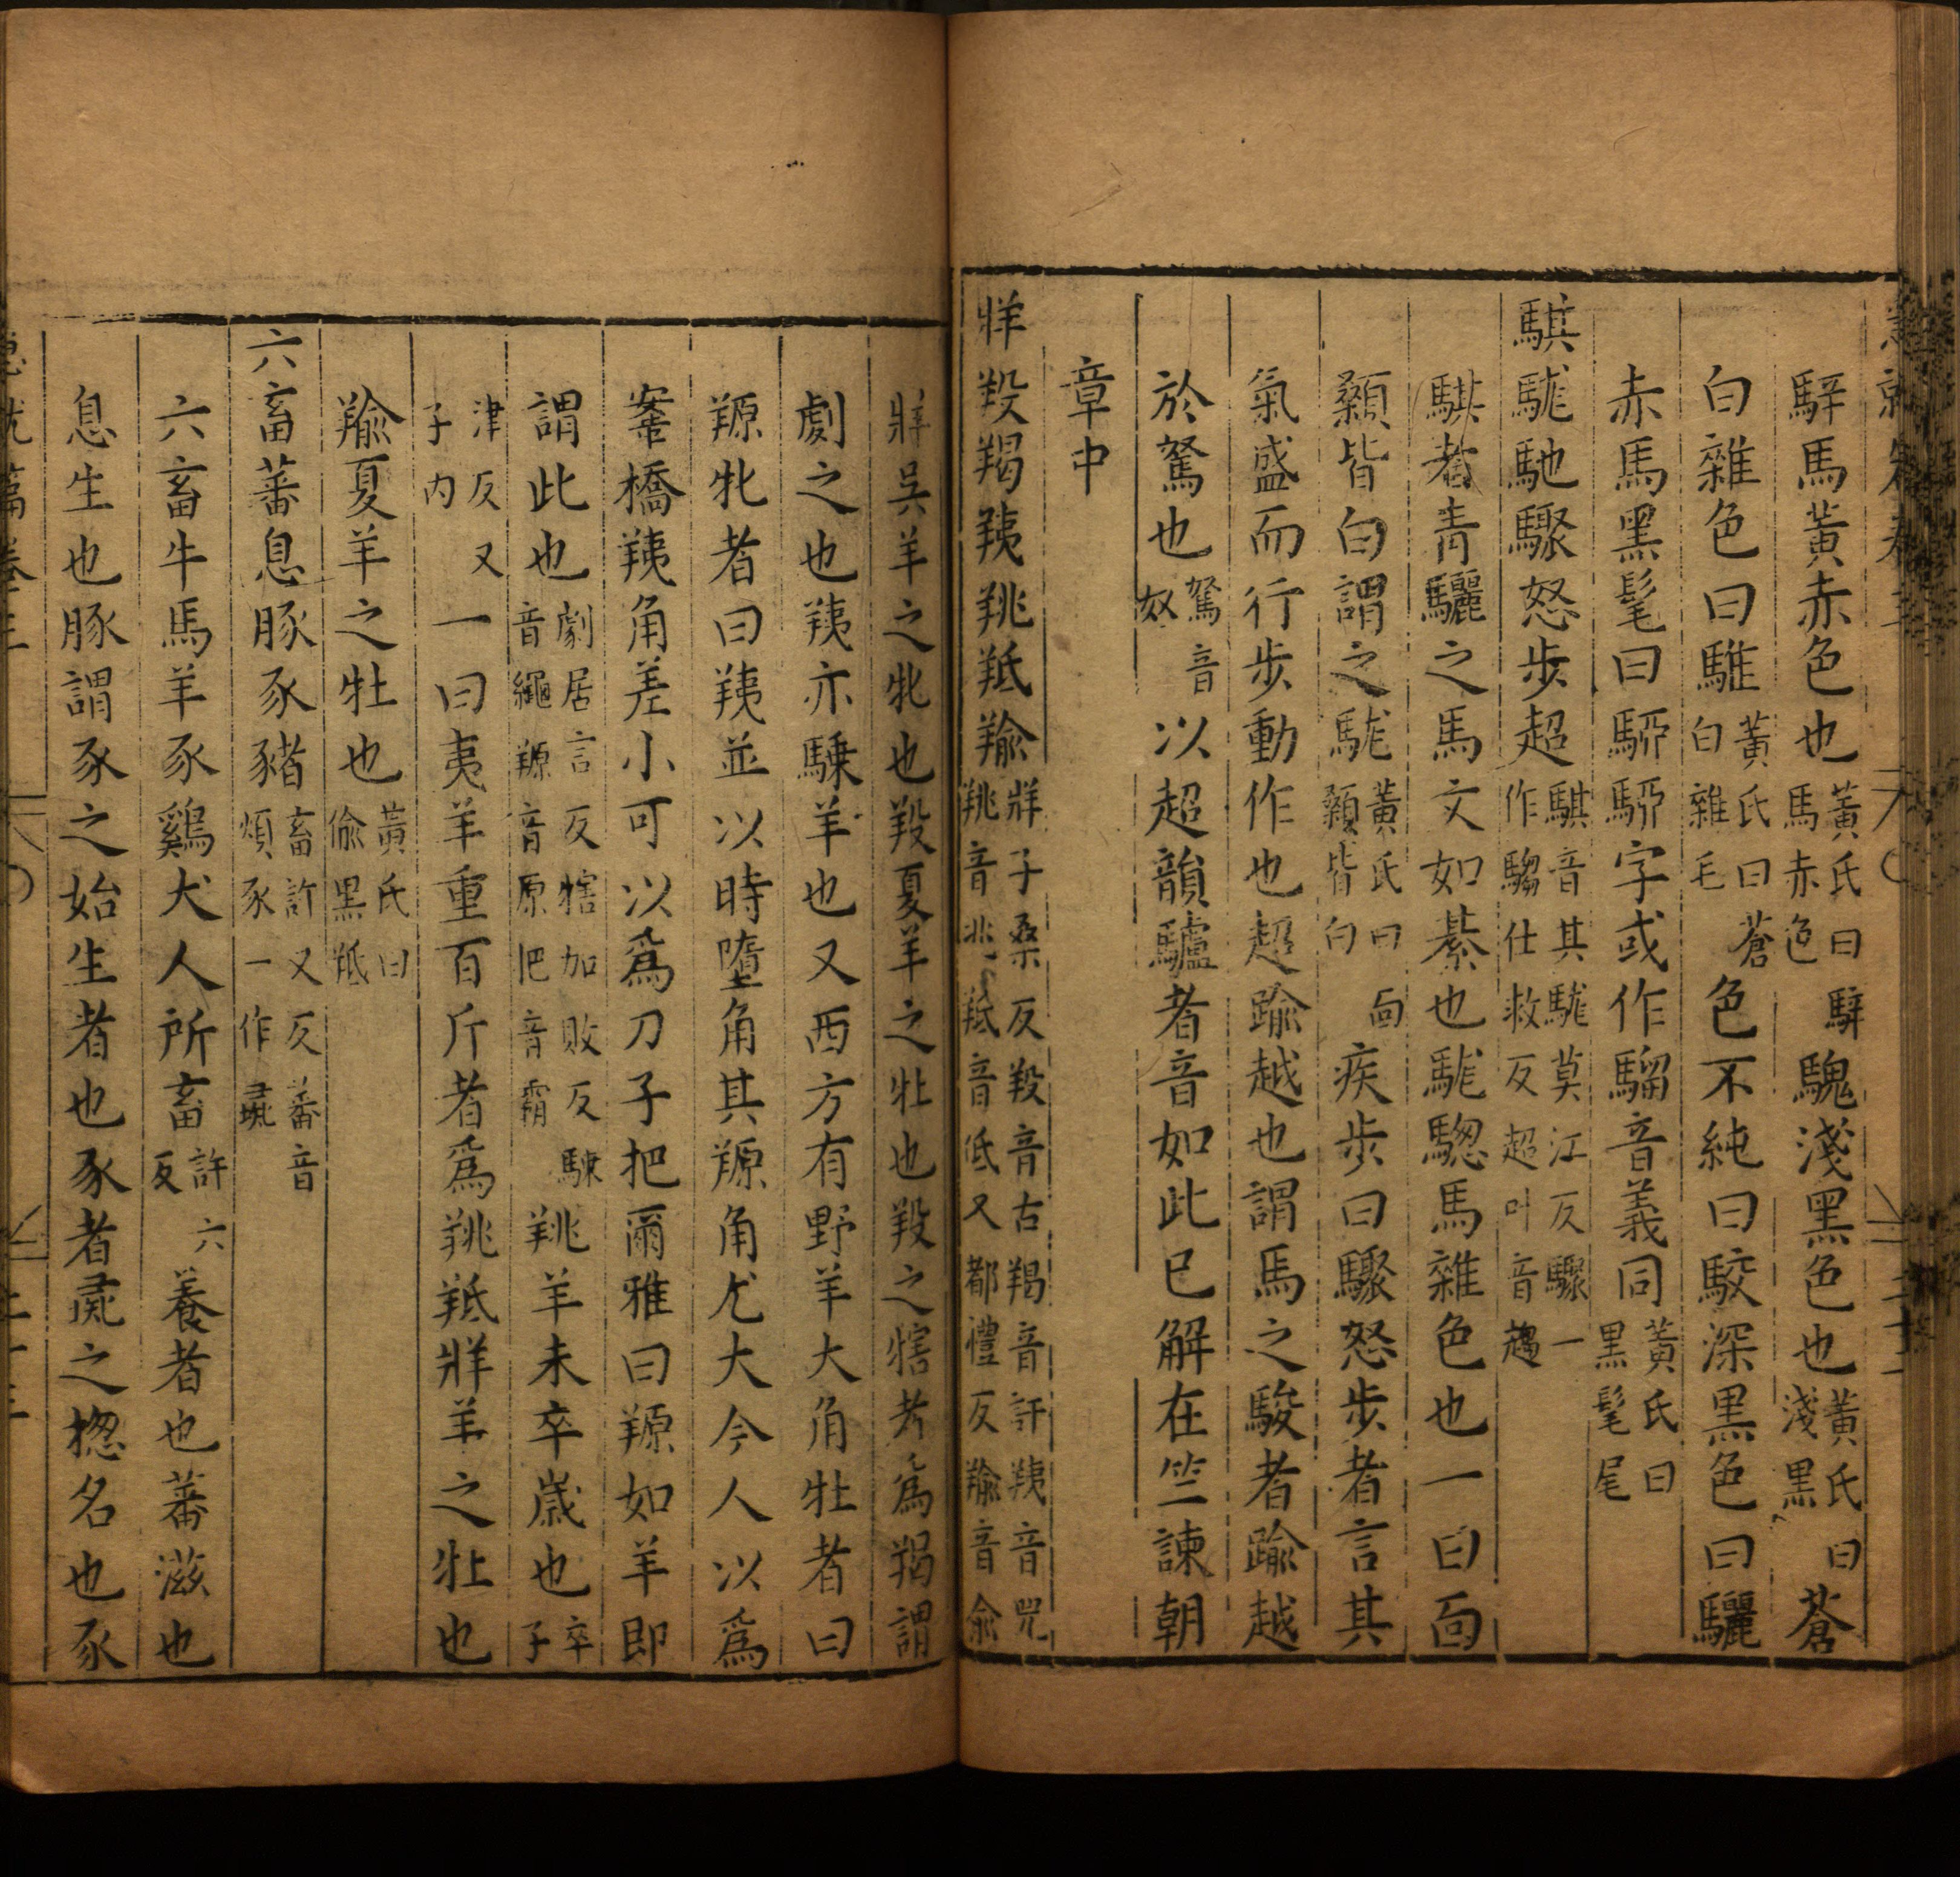 騂馬黃赤色也黃氏曰騂馬赤色騩淺黑色也黃氏曰淺黑蒼
白雜色曰騅黃氏曰蒼白雜毛色不純曰駮深黑色曰驪
赤馬黑髦曰駵駵字或作騮音義同黃氏曰黑髦尾
騏駹馳驟怒步超騏音其駹莫江反驟一作騶仕救反超叶音趨
騏者青驪之馬文如綦也駹騘馬雜色也一曰面
顙皆白謂之駹黃氏曰面顙皆白疾步曰驟怒步者言其
氣盛而行步動作也超踰越也謂馬之駿者踰越
於駑也駑音奴以超韻驢者音如此已解在竺諫朝
章中
牂羖羯羠𦍩羝羭牂子桑反羖音古羯音訐羠音兕𦍩音兆羝音低又都禮反羭音俞
牂吳羊之牝也羖夏羊之牡也羖之犗者爲羯謂
劇之也羠亦騬羊也又西方有野羊大角牡者曰
羱牝者曰羠並以時墮角其羱角尤大今人以爲
峯橋羠角差小可以爲刀子把爾雅曰羱如羊即
謂此也劇居言反犗加敗反騬音繩羱音原把音霸𦍩羊未卒歲也卒子
津反又子内一曰夷羊重百斤者爲𦍩羝牂羊之牡也
羭夏羊之牡也黃氏曰偸黑羝
六畜蕃息豚豕豬畜許又反蕃音煩豕一作彘
六畜牛馬羊豕鷄犬人所畜許六反養者也蕃滋也
息生也豚謂豕之始生者也豕者彘之揔名也豕